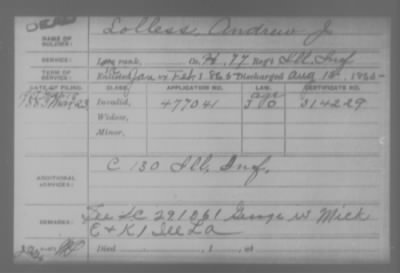 DEAD
NAME OF SOLDIER: Lolless, Andrew J
SERVICE: Late rank, Co. H, 77 Reg't Ill. Inf
TERM OF SERVICE: Enlisted Jan Feb 1865 Discharged Aug 15, 1865
DATE OF FILING. CLASS. APPLICATION NO. LAW. CERTIFICATE NO.
1883 Mar 23 Invalid, 477041 314229
Widow,
Minor,
ADDITIONAL SERVICES: C 130 Ill. Inf.
REMARKS: See SC 291261 George W
E & K
Died , 1 , at